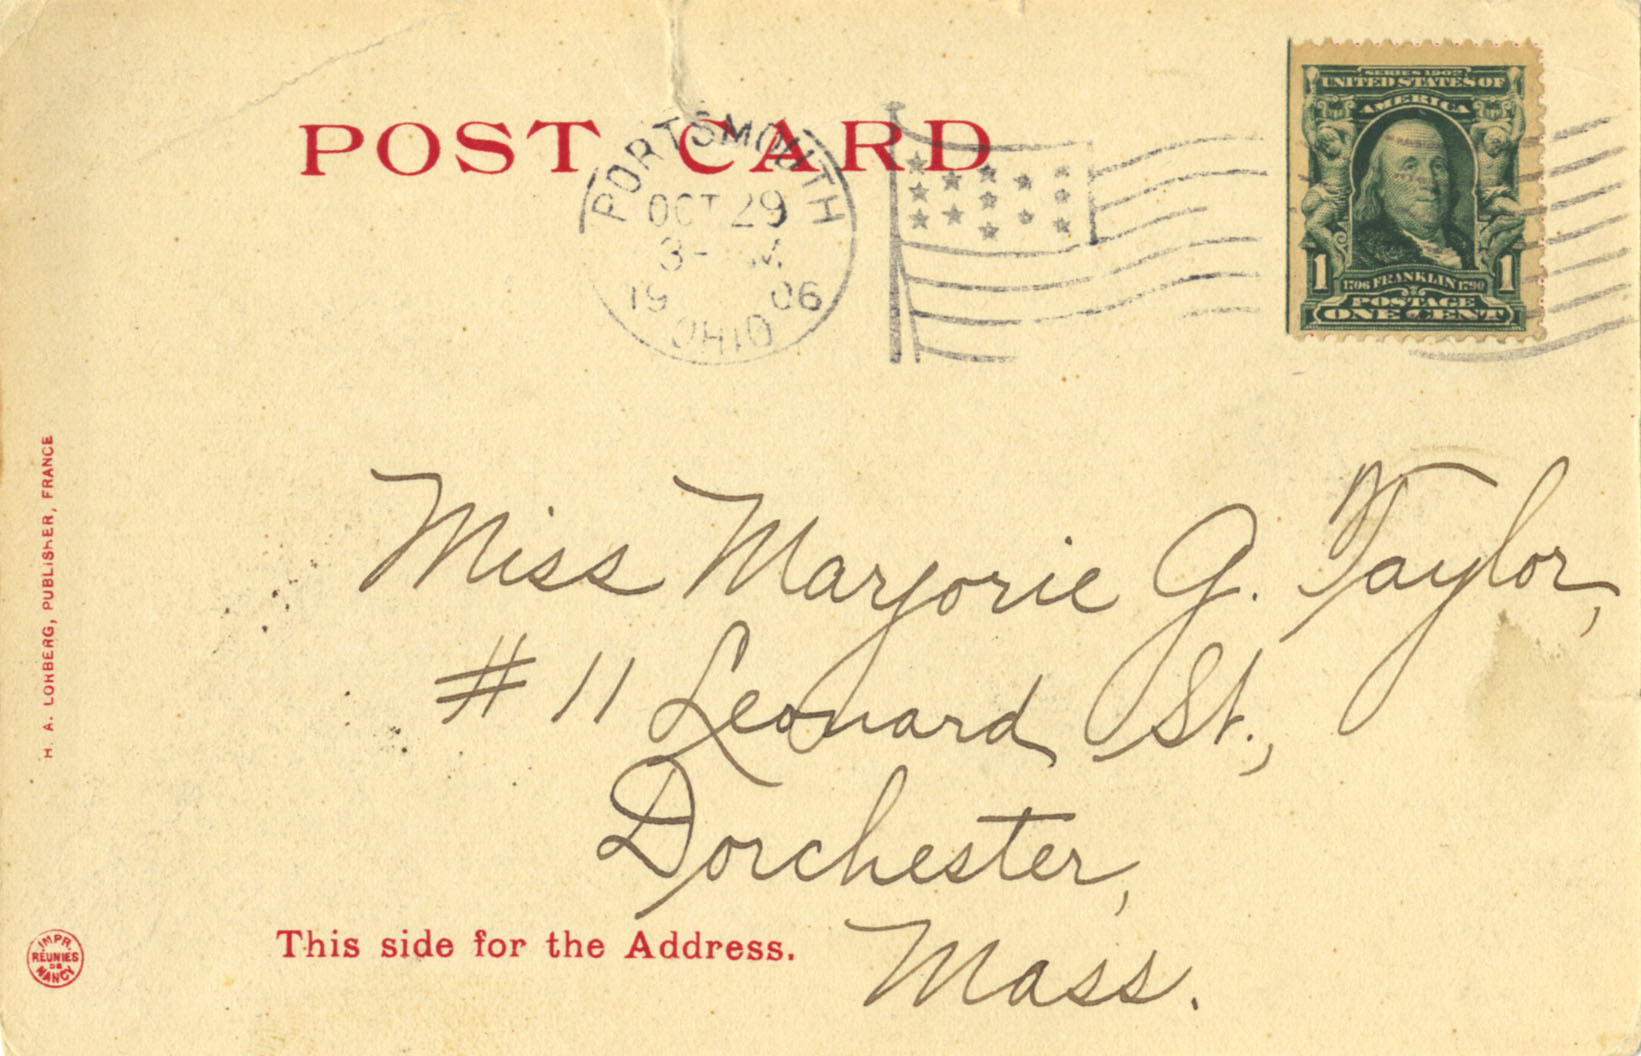 POST CARD
PORTSMOUTH
OCT 29
3- M
19 06
OHIO
SERIES 1902
UNITED STATES OF
AMERICA
1 1
1706 FRANKLIN 1790
POSTAGE
ONE CENT
H. A. LORBERG, PUBLISHER, FRANCE
Miss Marjorie G. Taylor,
# 11 Leonard St.,
Dorchester,
Mass.
This side for the Address.
IMPR.
RÉUNIES
DE
NANCY